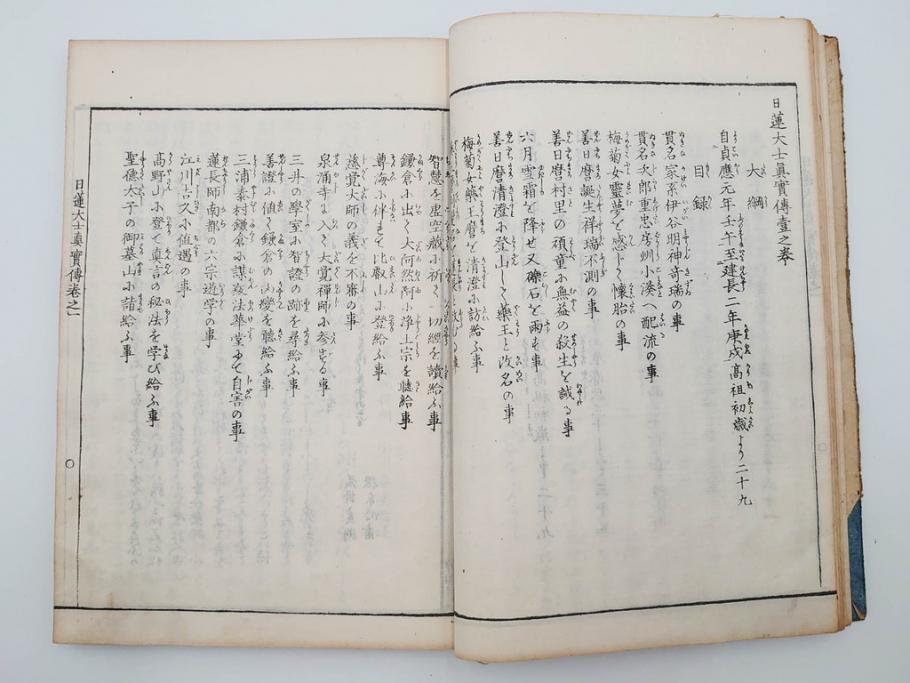 日蓮大士真實傳壹之巻
大綱
自貞應元年壬午至建長二年庚戌高祖初歳より二十九
目録
貫名家系伊谷明神奇瑞の事
貫名次郎重忠房州小湊へ配流の事
梅菊女靈夢を感じて懐胎の事
善日麿誕生祥瑞不測の事
善日麿村里の頑童に無益の殺生を誡る事
六月雲霜を降せ又礫石を雨す事
善日麿清澄に登山して藥王と改名の事
梅菊女藥王麿を清澄に訪給ふ事
智慧を虚空蔵に祈て一切經を讀給ふ事
鎌倉に出て大阿然阿に浄土宗を聴給ふ事
尊海に伴れて比叡山に登給ふ事
慈覚大師の義を不審の事
泉涌寺に入て大覚禅師に参ずる事
三井の學室に智證の跡を尋給ふ事
善證に値て鎌倉の凶變を聴給ふ事
三浦泰村鎌倉に謀叛法華堂にて自害の事
蓮長師南都の六宗遊学の事
江川吉久に値遇の事
高野山に登て真言の秘法を学び給ふ事
聖徳太子の御墓山に詣給ふ事
日蓮大士真實傳巻之一